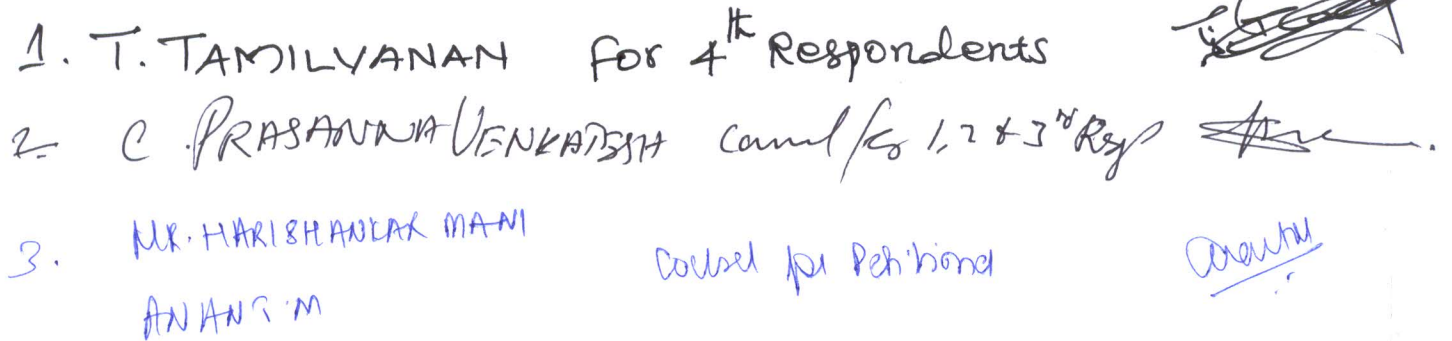 1. T. TAMILVANAN For 4th Respondents
2. C. PRASANNA VENKATESH Counsel for 1, 2 & 3rd Resp
3. MR. HARISHANKAR MANI Counsel for Petitioner
ANANT. M